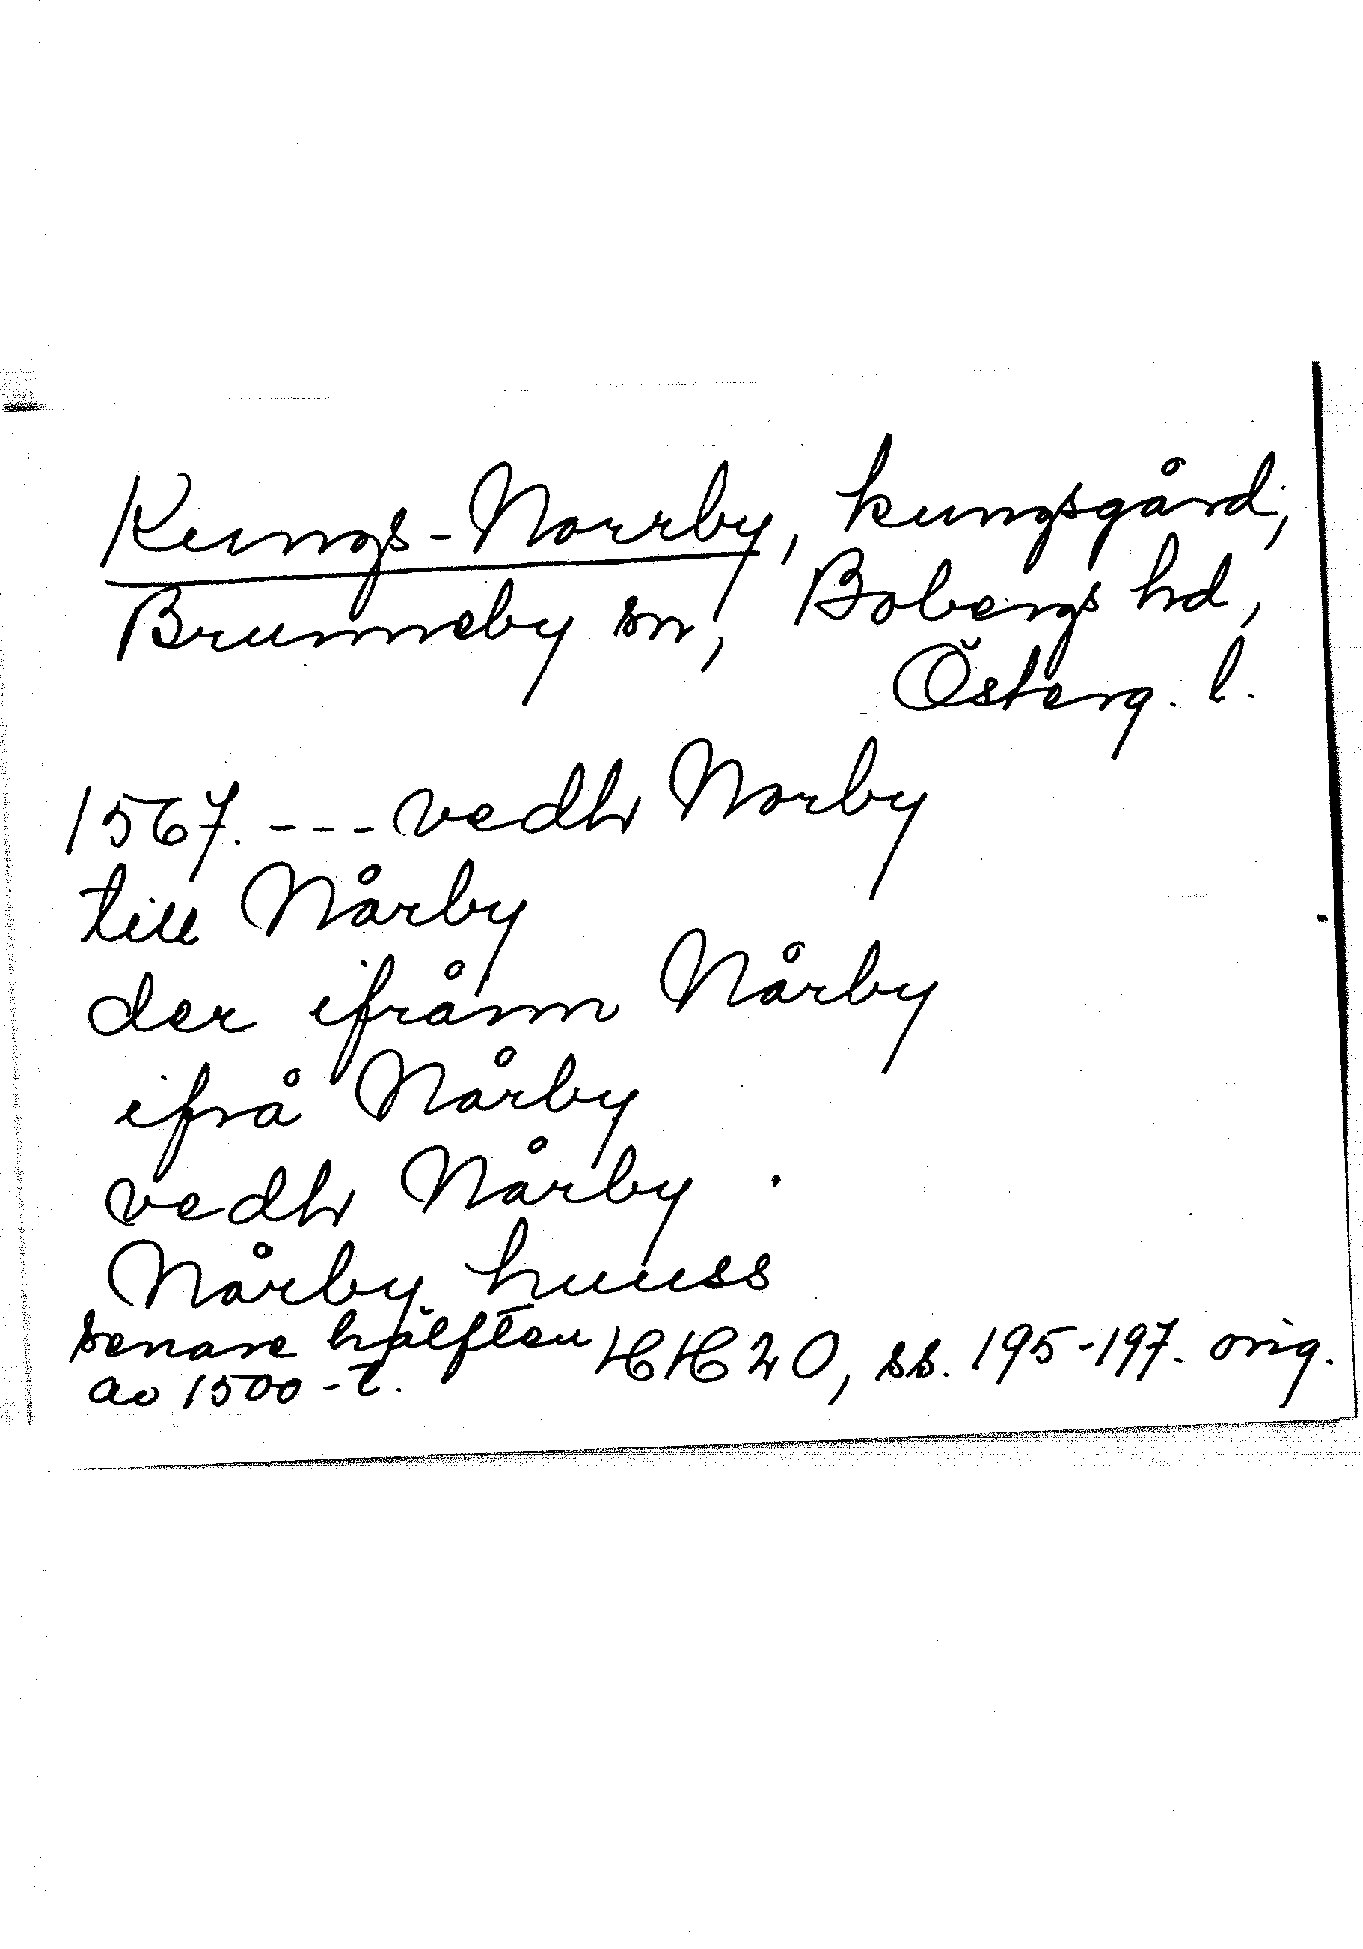 Kungs-Norrby, kungsgård,
Brunneby sn, Bobergs hd,
Österg. l.
1567. --- vedh Norby
till Nårby
der ifrånn Nårby
ifrå Nårby
vedh Nårby
Nårby huuss
senare hälften HH 20, ss. 195-197. orig.
av 1500-t.